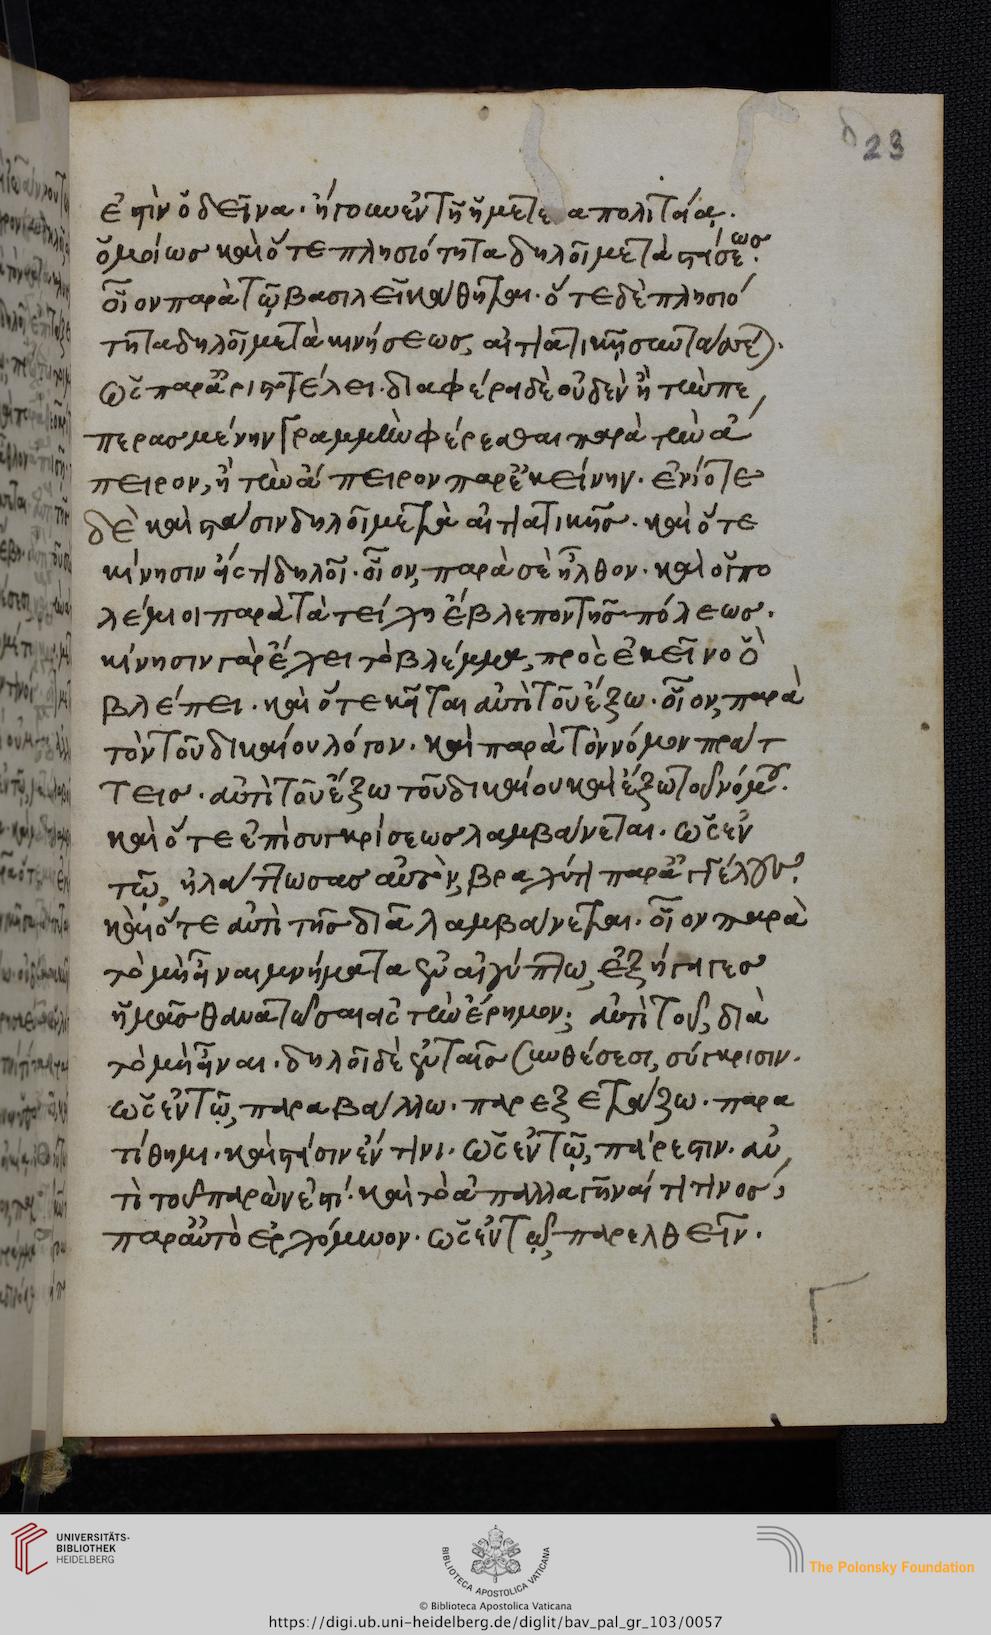 23
ἐστὶν ὁ δεῖνα· ἤγουν ἐν τῆ ἡμετέρα πολιτεία.
ὁμοίως καὶ ὅτε πλησιότητα δηλοῖ μετὰ στάσεως·
οἷον παρὰ τῷ βασιλεῖ κάθηται· ὅτε δὲ πλησιό
τητα δηλοῖ μετὰ κινήσεως, αἰτιατικῆ
ὡς παρὰ ἀριστοτέλει· διαφέρει δὲ οὐδὲν ἢ τὴν πε
περασμένην γραμμὴν φέρεσθαι παρὰ τὴν ἄ
πειρον, ἢ τὴν ἄπειρον παρ' ἐκείνην. ἐνίοτε
δὲ καὶ στάσιν δηλοῖ μετὰ αἰτιατικῆς· καὶ ὅτε
κίνησιν εἴς τι δηλοῖ· οἷον, παρὰ σὲ ἦλθον· καὶ οἱ πο
λέμιοι παρὰ τὰ τείχη ἔβλεπον τῆς πόλεως.
κίνησιν γὰρ ἔχει τὸ βλέμμα, πρὸς ἐκεῖνο ὃ
βλέπει. καὶ ὅτε κεῖται ἀντὶ τοῦ ἔξω· οἷον, παρὰ
τὸν τοῦ δικαίου λόγον· καὶ παρὰ τὸν νόμον πράτ
τεις· ἀντὶ τοῦ ἔξω τοῦ δικαίου καὶ ἔξω τοῦ νόμου.
καὶ ὅτε ἐπὶ συγκρίσεως λαμβάνεται· ὡς ἐν
τῷ, ἠλάττωσας αὐτὸν, βραχύ τι παρ' ἀγγέλους.
καὶ ὅτε ἀντὶ τῆς διὰ λαμβάνεται· οἷον παρὰ
τὸ μὴ εἶναι μνήματα ἐν αἰγύπτω, ἐξήγαγες
ἡμᾶς θανατῶσαι εἰς τὴν ἔρημον; ἀντὶ τοῦ, διὰ
τὸ μὴ εἶναι. δηλοῖ δὲ ἐν ταῖς συνθέσεσι, σύγκρισιν.
ὡς ἐν τῷ, παραβάλλω· παρεξετάζω· παρα
τίθημι· καὶ στάσιν ἔν τινι· ὡς ἐν τῷ, πάρεστιν. ἀν
τὶ τοῦ παρών ἐστί· καὶ τὸ ἀπαλλαγῆναί τι τινος,
παρ' αὐτὸ ἐρχόμενον· ὡς ἐν τῷ, παρελθεῖν.
UNIVERSITÄTS-
BIBLIOTHEK
HEIDELBERG
BIBLIOTECA APOSTOLICA VATICANA
The Polonsky Foundation
© Biblioteca Apostolica Vaticana
https://digi.ub.uni-heidelberg.de/diglit/bav_pal_gr_103/0057